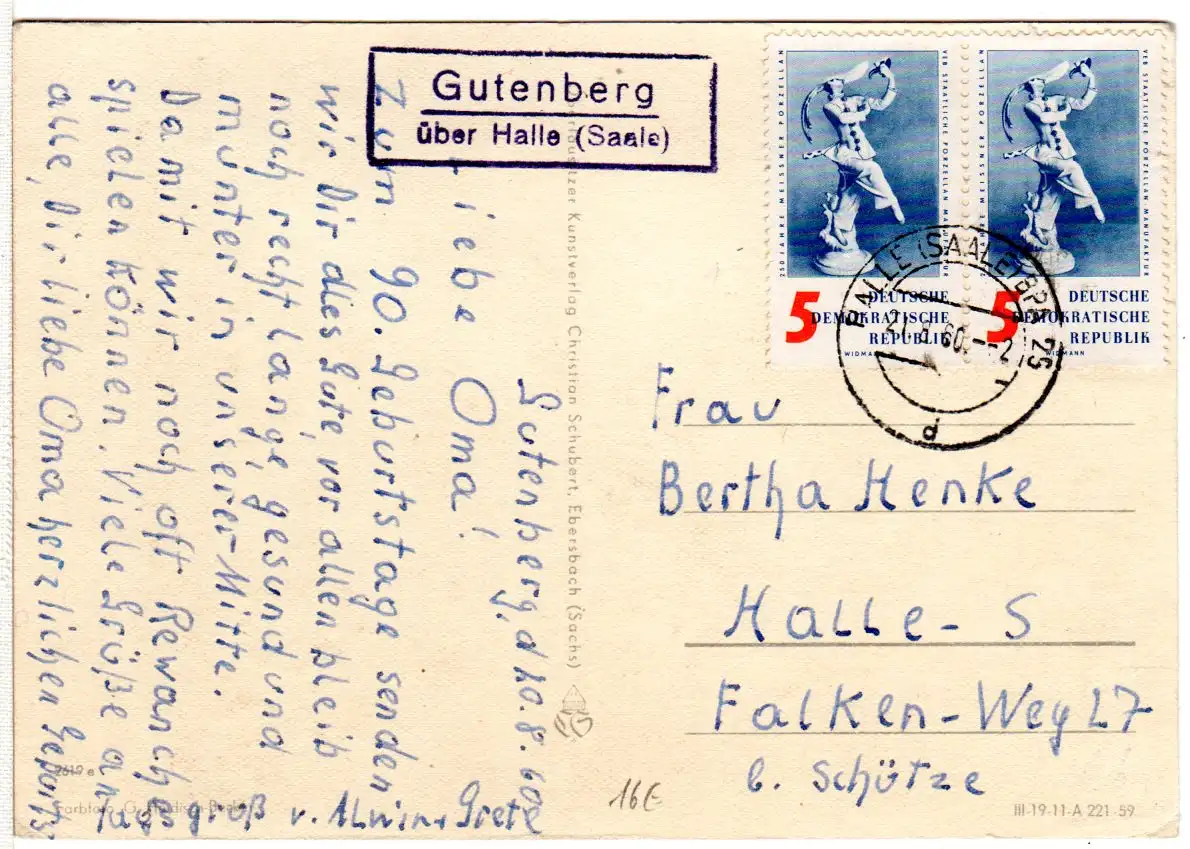 Gutenberg
über Halle (Saale)
250 JAHRE MEISSNER PORZELLAN
VEB STAATLICHE PORZELLAN MANUFAKTUR
5 DEUTSCHE
DEMOKRATISCHE
REPUBLIK
WIDMANN
JAHRE MEISSNER PORZELLAN
VEB STAATLICHE PORZELLAN MANUFAKTUR
5 DEUTSCHE
DEMOKRATISCHE
REPUBLIK
WIDMANN
HALLE (SAALE) BPA 25
21.8.60
d
Gutenberg, d 20.8.60
iebe Oma!
Zum 90. Geburtstage senden
wir Dir alles Gute, vor allen bleib
noch recht lange, gesund und
munter in unserer Mitte.
Damit wir noch oft Rewanche
spielen können. Viele Grüße an
alle, Dir liebe Oma herzlichen Geburts
tagsgruß v. Alwin u Grete
Kunstverlag Christian Schubert, Ebersbach (Sachs)
Frau
Bertha Henke
Halle-S
Falken-Weg 27
b. Schütze
2619 e
Farbfoto G.
16€
III-19-11-A 221-59